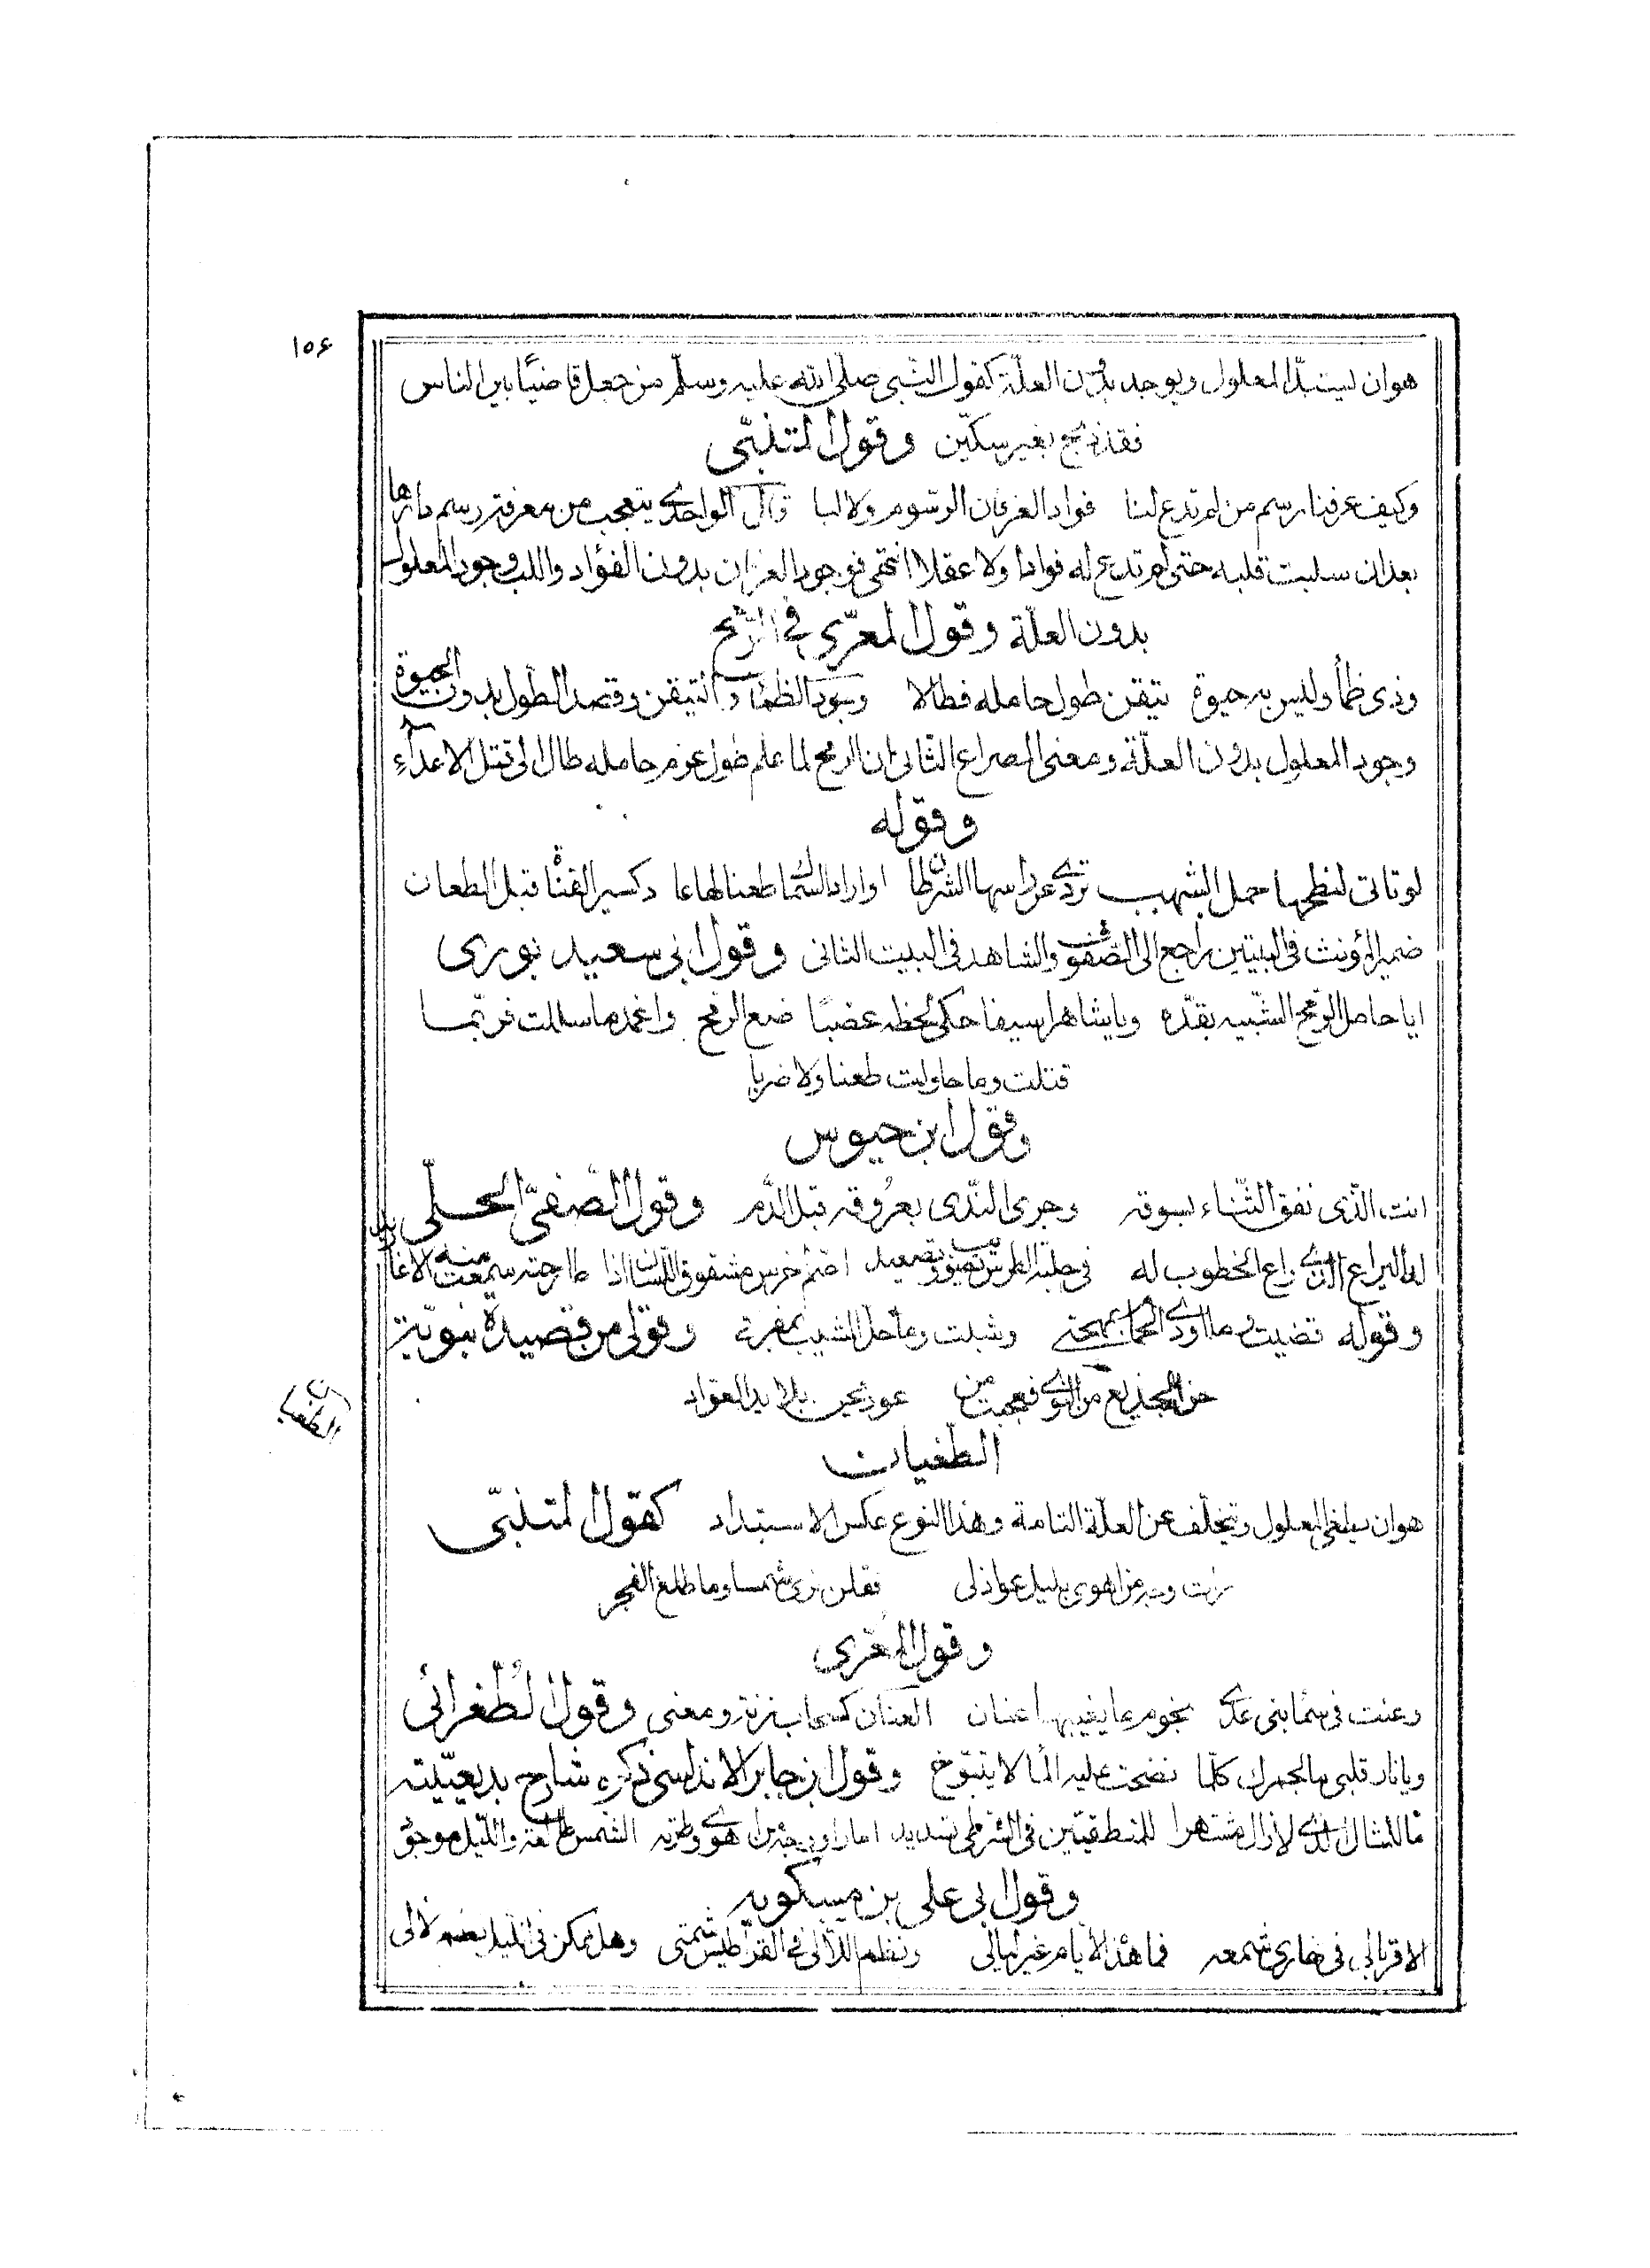 ١٥٦
هو ان يستبدّ المعلول ويوجد بدون العلّة كقول النّبي صلّى الله عليه وسلّم من جعل قاضيًا بين الناس
فقد ذبح بغير سكّين وقول المتنبّى
وكيف عرفنا رسم من لم تدع لنا فوادا لعرفان الرّسوم ولا لبا قال الواحدى يتعجب من معرفته رسم دارها
بعد ان سلبت قلبه حتى لم تدع له فوادا ولا عقلا انتهى فوجود العرفان بدون الفؤاد واللب وجود المعلول
بدون العلّة وقول المعرّى فى الرّمح
وذى ظمأ وليس به حيوة تيقن طول حامله فطالا وجود الظمأ والتيقن وقصد الطول بدون الحيوة
وجود المعلول بدون العلّة ومعنى المصراع الثّانى ان الرمح لما علم طول عزم حامله طال الى قتل الاعداء
وقوله
لو تاتى لنطحها حمل الشهب تردّى عن راسها الشرطان او اراد السّماك طعنا لها عاد كسير القناة قبل الطعان
ضمير المؤنث فى البيتين راجع الى والشاهد فى البيت الثانى وقول ابى سعيد نورى
ايا حامل الرّمح الشّبيه بقدّه ويا شاهرا سيفا حكى لحظه عضبًا ضع الرمح واغمد ما سللت فربّما
قتلت وما حاولت طعنا ولا ضربا
وقول ابن حيوس
انت الّذى نفق الثّناء بسوقه وجرى النّدى بعروقه قبل الدّم وقول الصّفىّ الحلّى
له اليراع الّذى راع الخطوب له فى حلبة الطرس تصويب وتصعيد اصمّ اخرس مشقوق اللّسان اذا طارحته سمعت منه الاغاريد
وقوله قضيت وما اودى الحمام بمهجتى وشبت وما حل الشيب بمفرقى وقولى من قصيدة نبويّة
حنّ الجذيع من النّوى فعجبت من عود يحنّ بلا يد العوّاد
الطغيان
الطغيان
هو ان يطغى المعلول ويتخلّف عن العلّة التامة وهذا النوع عكس الاستبداد كقول المتنبّى
رأت وجه من اهوى بليل عواذلى فقلن نرى شمسا وما طلع الفجر
وقول المعرى
وعنت فى سما بنى عدى نجوم ما يغيبها عنان العنان كسحاب زنة ومعنى وقول الطّغرائى
ويا نار قلبى ما لجمرك كلّما نضحت عليه الما لا يتبوّخ وقول ابن جابر الاندلسى ذكره شارح بديعيّته
ما للمثال الّذى لا زال مشتهرا للمنطقيّين فى الشرطى تسديد اما راوا وجه من اهوى وطرّته الشمس طالعة والليل موجود
وقول ابى على بن مسكويه